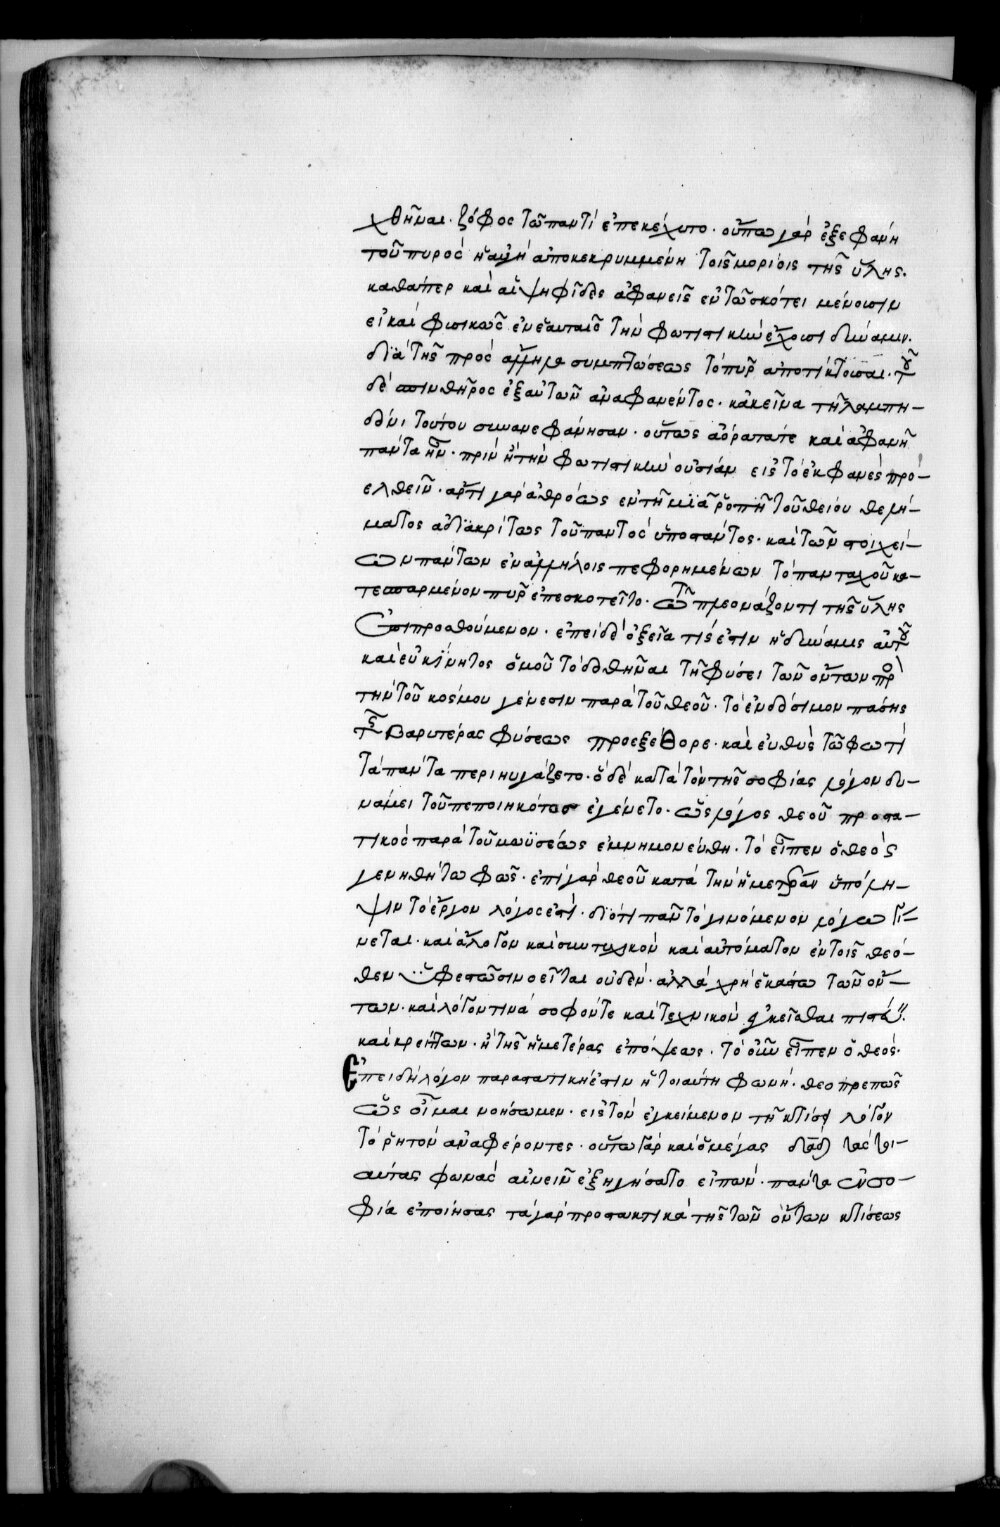 χθῆναι· ζόφος τῶ παντὶ ἐπεκέχυτο· οὔπω γὰρ ἐξεφάνη
τοῦ πυρὸς ἡ αὐγὴ ἀποκεκρυμμένη τοῖς μορίοις τῆς ὕλης.
καθάπερ καὶ αἱ ψηφῖδες ἀφανεῖς ἐν τῶ σκότει μένουσιν
εἰ καὶ φυσικῶς ἐν ἑαυταῖς τὴν φωτιστικὴν ἔχουσι δύναμιν.
διὰ τῆς πρὸς ἄλληλα συμπτώσεως τὸ πῦρ ἀποτίκτουσαι· τοῦ
δὲ σπινθῆρος ἐξ αὐτῶν ἀναφανέντος· κἀκεῖνα τῆ λαμπη-
δόνι τούτου συνανεφάνησαν· οὕτως ἀόρατά τε καὶ ἀφανῆ
πάντα ἦν· πρὶν ἢ τὴν φωτιστικὴν οὐσίαν εἰς τὸ ἐκφανὲς προ-
ελθεῖν· ἄρτι γὰρ ἀθρόως ἐν τῆ μιᾶ ῥοπῆ τοῦ θείου θελή-
ματος ἀδιακρίτως τοῦ παντὸς ὑποστάντος· καὶ τῶν στοιχεί-
ων πάντων ἐν ἀλλήλοις πεφορημένων τὸ πανταχοῦ κα-
τεσπαρμένον πῦρ ἐπεσκοτεῖτο· τῶ πλεονάζοντι τῆς ὕλης
ἐπιπροσθούμενον· ἐπειδὲ ὀξεῖά τίς ἐστιν ἡ δύναμις αὐτοῦ
καὶ εὐκίνητος ὁμοῦ τὸ δοθῆναι τῆ φύσει τῶν ὄντων πρὸς
τὴν τοῦ κόσμου γένεσιν παρὰ τοῦ θεοῦ· τὸ ἐνδόσιμον πάσης
τῆς βαρυτέρας φύσεως προεξέθορε· καὶ εὐθὺς τῶ φωτὶ
τὰ πάντα περιηυγάζετο· ὃ δὲ κατὰ τὸν τῆς σοφίας λόγον δυ-
νάμει τοῦ πεποιηκότος ἐγένετο· ὡς λόγος θεοῦ προστα-
τικὸς παρὰ τοῦ μωϋσέως ἐμνημονεύθη· τὸ εἶπεν ὁ θεὸς
γενηθήτω φῶς· ἐπὶ γὰρ θεοῦ κατὰ τὴν ἡμετέραν ὑπόλη-
ψιν τὸ ἔργον λόγος ἐστί· διότι πᾶν τὸ γινόμενον λόγω γί-
νεται· καὶ ἄλογον καὶ συντυχικὸν καὶ αὐτόματον ἐν τοῖς θεό-
θεν ὑφεστῶσι νοεῖται οὐδέν· ἀλλὰ χρὴ ἑκάστω τῶν ὄν-
των· καὶ λόγον τινὰ σοφόν τε καὶ τεχνικὸν ἐγκεῖσθαι πιστεύειν.
καὶ κρείττων· ἢ τῆς ἡμετέρας ἐπόψεως. τὸ οὖν εἶπεν ὁ θεός·
Ἐπειδὴ λόγον παραστατική ἐστιν ἡ τοιαύτη φωνή· θεοπρεπῶς
ὡς οἶμαι νοήσωμεν· εἰς τὸν ἐγκείμενον τῆ κτίσει λόγον
τὸ ῥητὸν ἀναφέροντες· οὕτω γὰρ καὶ ὁ μέγας δαδ τὰς τοι-
αύτας φωνὰς αἰνεῖν ἐξηγήσατο εἰπών· πάντα ἐν σο-
φία ἐποίησας τὰ γὰρ προστακτικὰ τῆς τῶν ὄντων κτίσεως